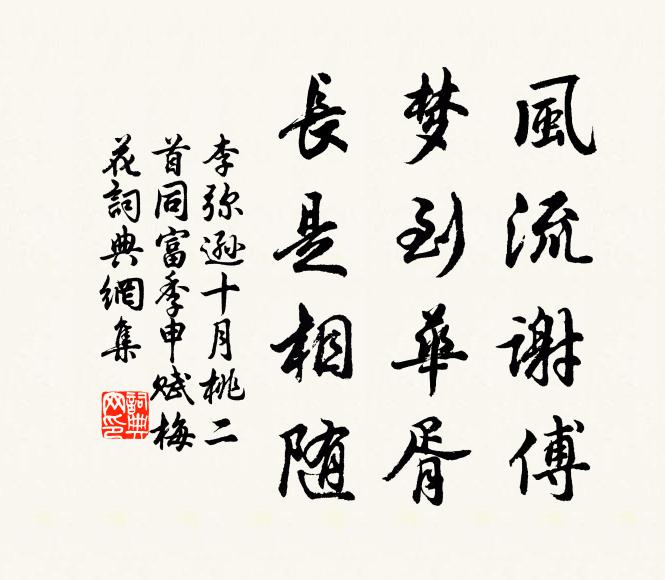 風流謝傅
梦到華胥
長是相随
李弥遜十月桃二
首同富季申赋梅
花詞典網集
詞典
网印